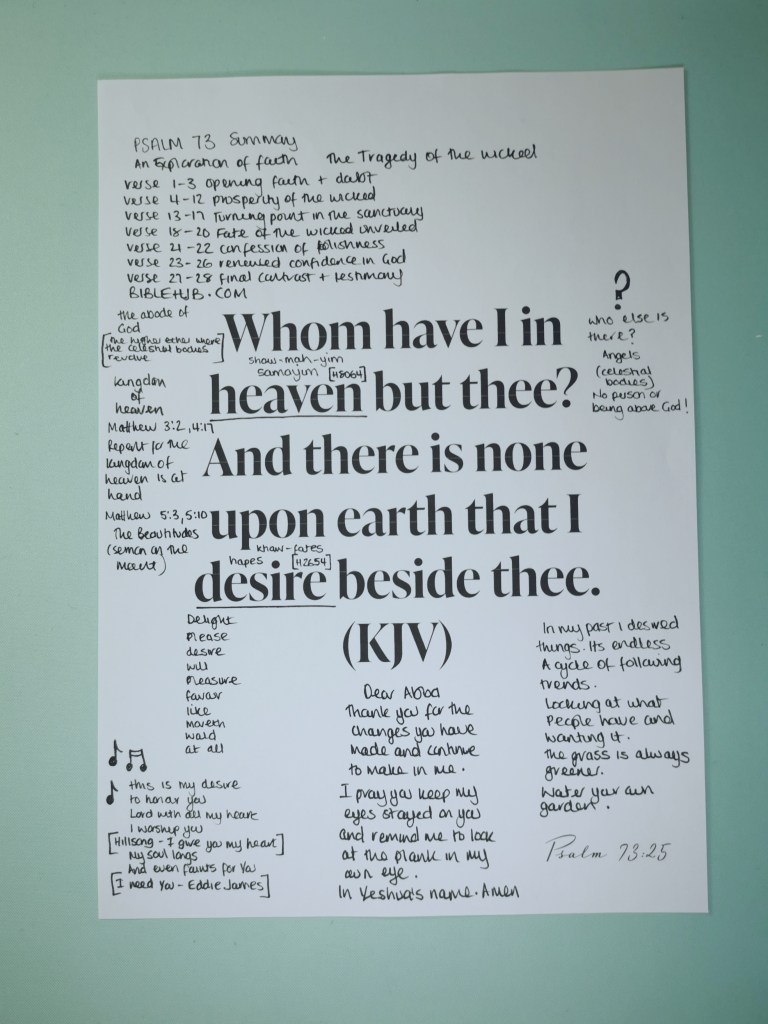 PSALM 73 Summary
An Exploration of faith The Tragedy of the wicked
verse 1-3 opening faith + dabt
verse 4-12 prosperity of the wicked
verse 13-17 Turning point in the sanctuary
verse 18-20 Fate of the wicked unveiled
verse 21-22 confession of folishness
verse 23-26 renewed confidence in God
verse 27-28 final contrast + testimony
BIBLEHUB.COM
the abode of
God
[the higher ether where
the celestial bodies
revolve]
kingdom
of
heaven
Matthew 3:2, 4:17
Repent for the
kingdom of
heaven is at
hand
Matthew 5:3, 5:10
The Beautitudes
(semon on the
mount)
Whom have I in
shaw-mah-yim
samayim [H8064]
heaven but thee?
And there is none
upon earth that I
khaw-fates
hapes [H2654]
desire beside thee.
(KJV)
?
who else is
there?
Angels
(celestial
bodies)
No person or
being above God!
Delight
Please
desire
will
pleasure
favour
like
moveth
would
at all
this is my desire
to honour you
Lord with all my heart
I worship you
[Hillsong - I give you my heart]
My soul longs
And even faints for You
[I need You - Eddie James]
Dear Abba
Thank you for the
changes you have
made and continue
to make in me.
I pray you keep my
eyes stayed on you
and remind me to look
at the plank in my
own eye.
In Yeshua's name. Amen
In my past I desired
things. Its endless
A cycle of following
trends.
Looking at what
People have and
wanting it.
The grass is always
greener.
Water your own
garden.
Psalm 73:25